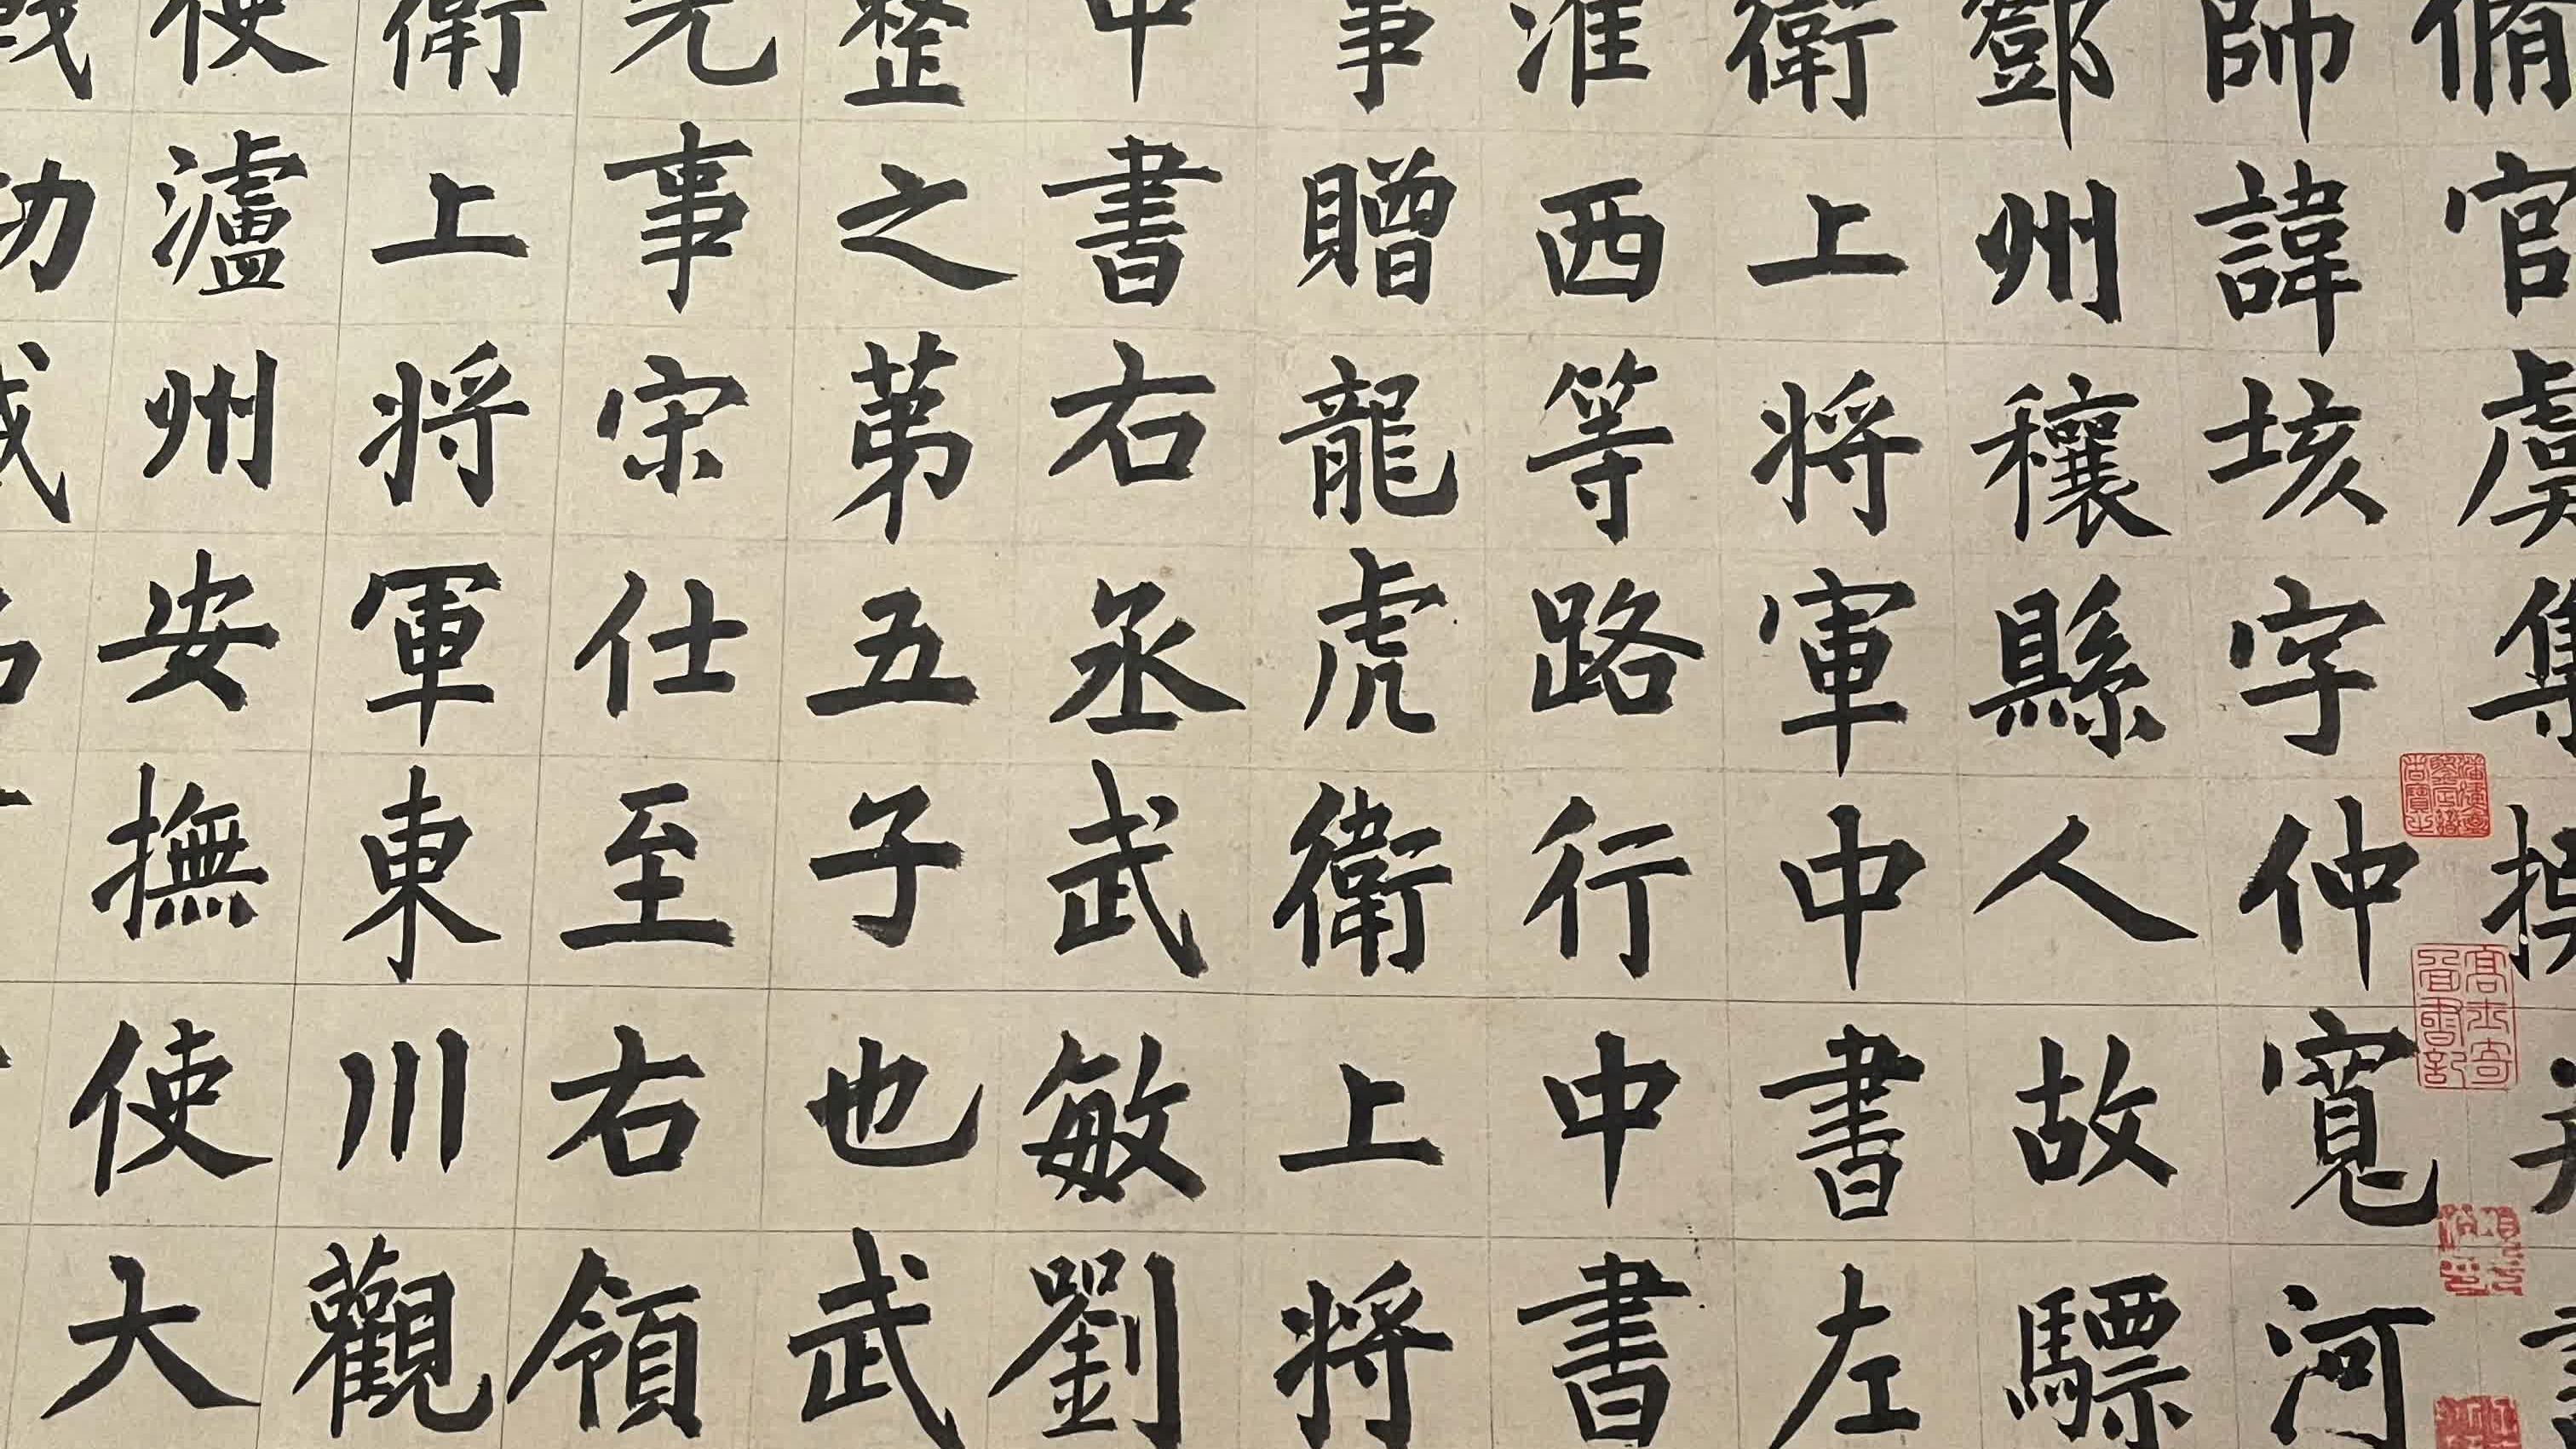 脩官虞集撰并書
帥諱垓字仲寬河
鄧州穰縣人故驃
衛上将軍中書左
淮西等路行中書
事贈龍虎衛上将
中書右丞武敏劉
整之弟五子也武
元事宋仕至右領
衛上将軍東川觀
使瀘州安撫使大
功